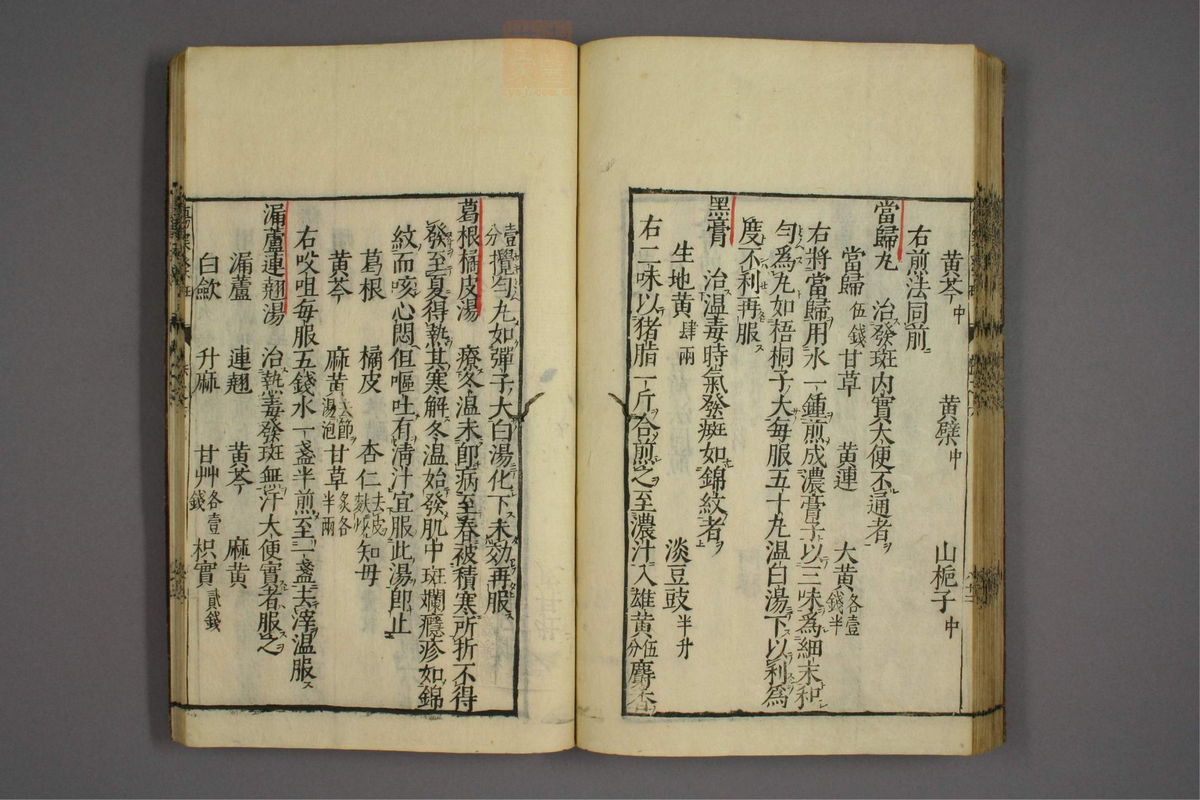 黄芩中 黄檗中 山梔子中
右煎法同前ニ
當歸丸 治發斑内實大便不通者
當歸伍錢 甘草 黄連 大黄各壹錢半
右將當歸用水一鍾煎成濃膏子以三味為細末和
勻為丸如梧桐子大每服五十丸温白湯下以利為
度不利再服
黑膏 治温毒時氣發斑如錦紋者
生地黄肆兩 淡豆豉半升
右二味以猪脂一斤合煎之至濃汁入雄黄伍分麝香
壹分攪勻丸如彈子大白湯化下未効再服
葛根橘皮湯 療冬温未即病至春被積寒所折不得
發至夏得熱其寒解冬温始發肌中斑爛癮疹如錦
紋而咳心悶但嘔吐有清汁宜服此湯即止
葛根 橘皮 杏仁去皮麩炒 知母
黄芩 麻黄去節湯泡 甘草炙各半兩
右㕮咀每服五錢水一盞半煎至一盞去滓温服
漏蘆連翹湯 治熱毒發斑無汗大便實者服之
漏蘆 連翹 黄芩 麻黄
白歛 升麻 甘艸各壹錢 枳實貳錢